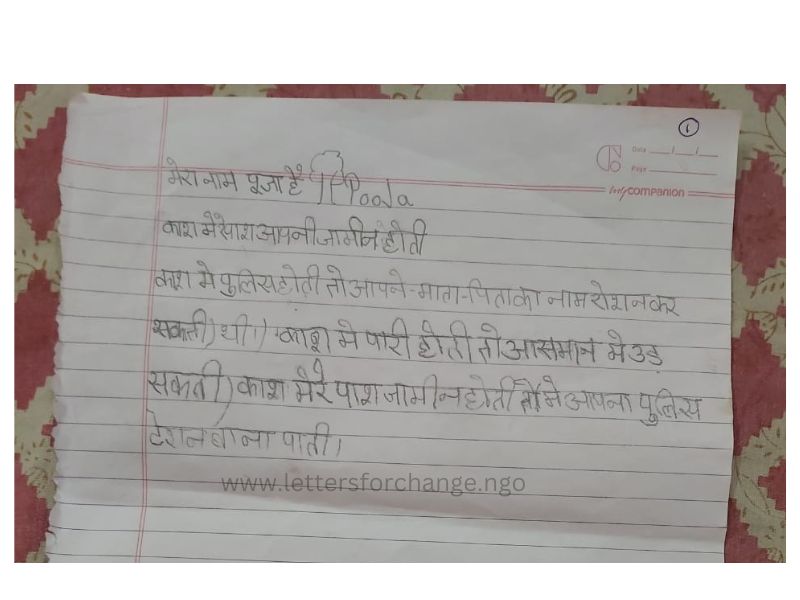 1
Date
Page
lovely companion
मेरा नाम पूजा है Pooja
काश मेरे पाश आपनी जामीन होती
काश मे पुलिस होती तो आपने-माता-पिता का नाम रोशन कर
सकती) थी।) काश मे पारी होती तो आसमान मे उड़
सकती) काश मेरे पाश जामीन होती तो मे आपना पुलिस
टेशन बाना पाती।
www.lettersforchange.ngo